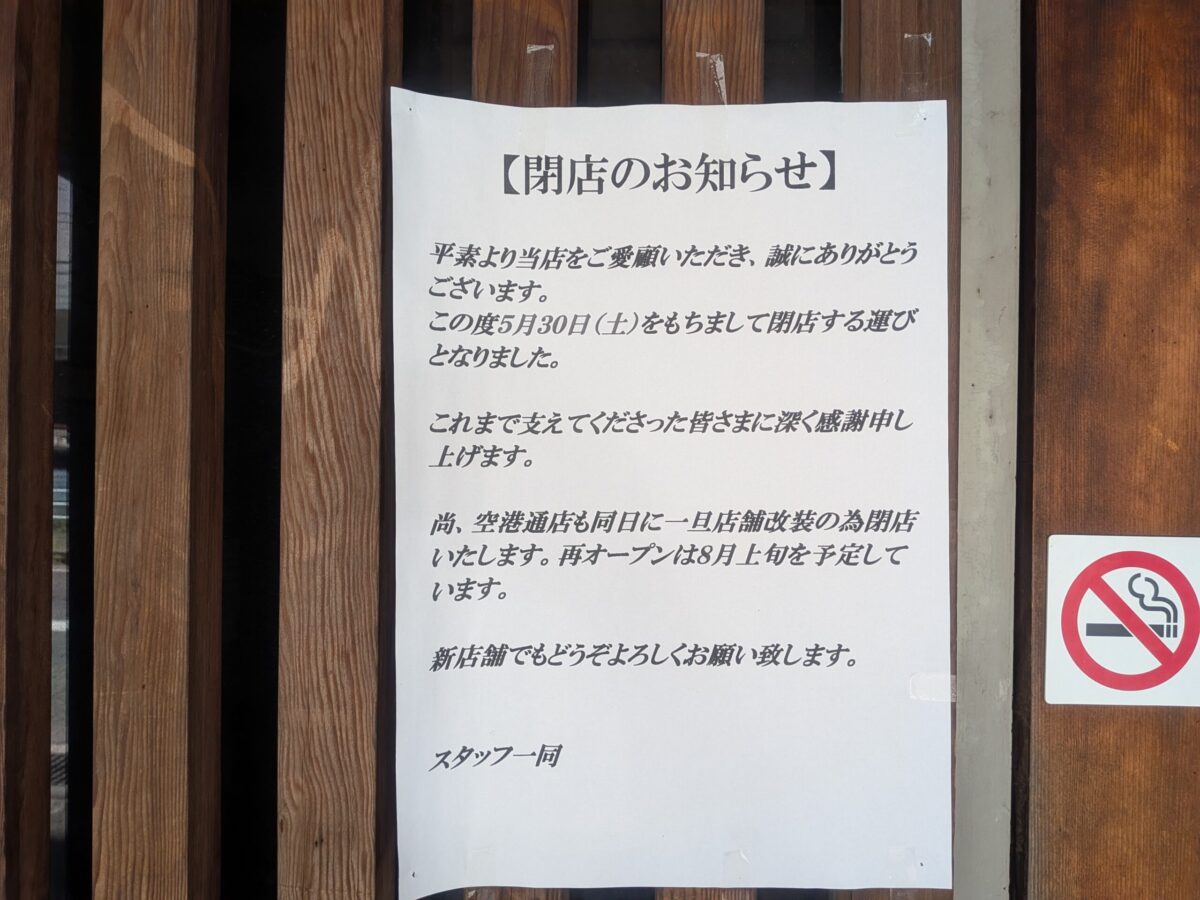 【閉店のお知らせ】
平素より当店をご愛顧いただき、誠にありがとう
ございます。
この度5月30日(土)をもちまして閉店する運び
となりました。
これまで支えてくださった皆さまに深く感謝申し
上げます。
尚、空港通店も同日に一旦店舗改装の為閉店
いたします。再オープンは8月上旬を予定して
います。
新店舗でもどうぞよろしくお願い致します。
スタッフ一同